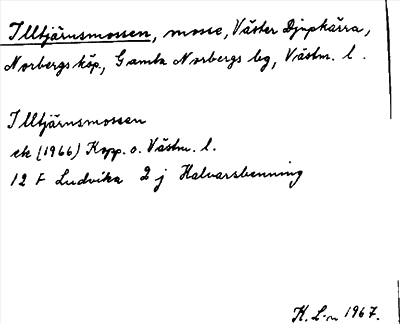 Illtjärnsmossen, mosse, Väster Djupkärra,
Norbergs köp., Gamla Norbergs bg, Västm. l.
Illtjärnsmossen
ek (1966) Kopp. o. Västm. l.
12 F Ludvika 2 j Halvarsbenning
K. L-n 1967.